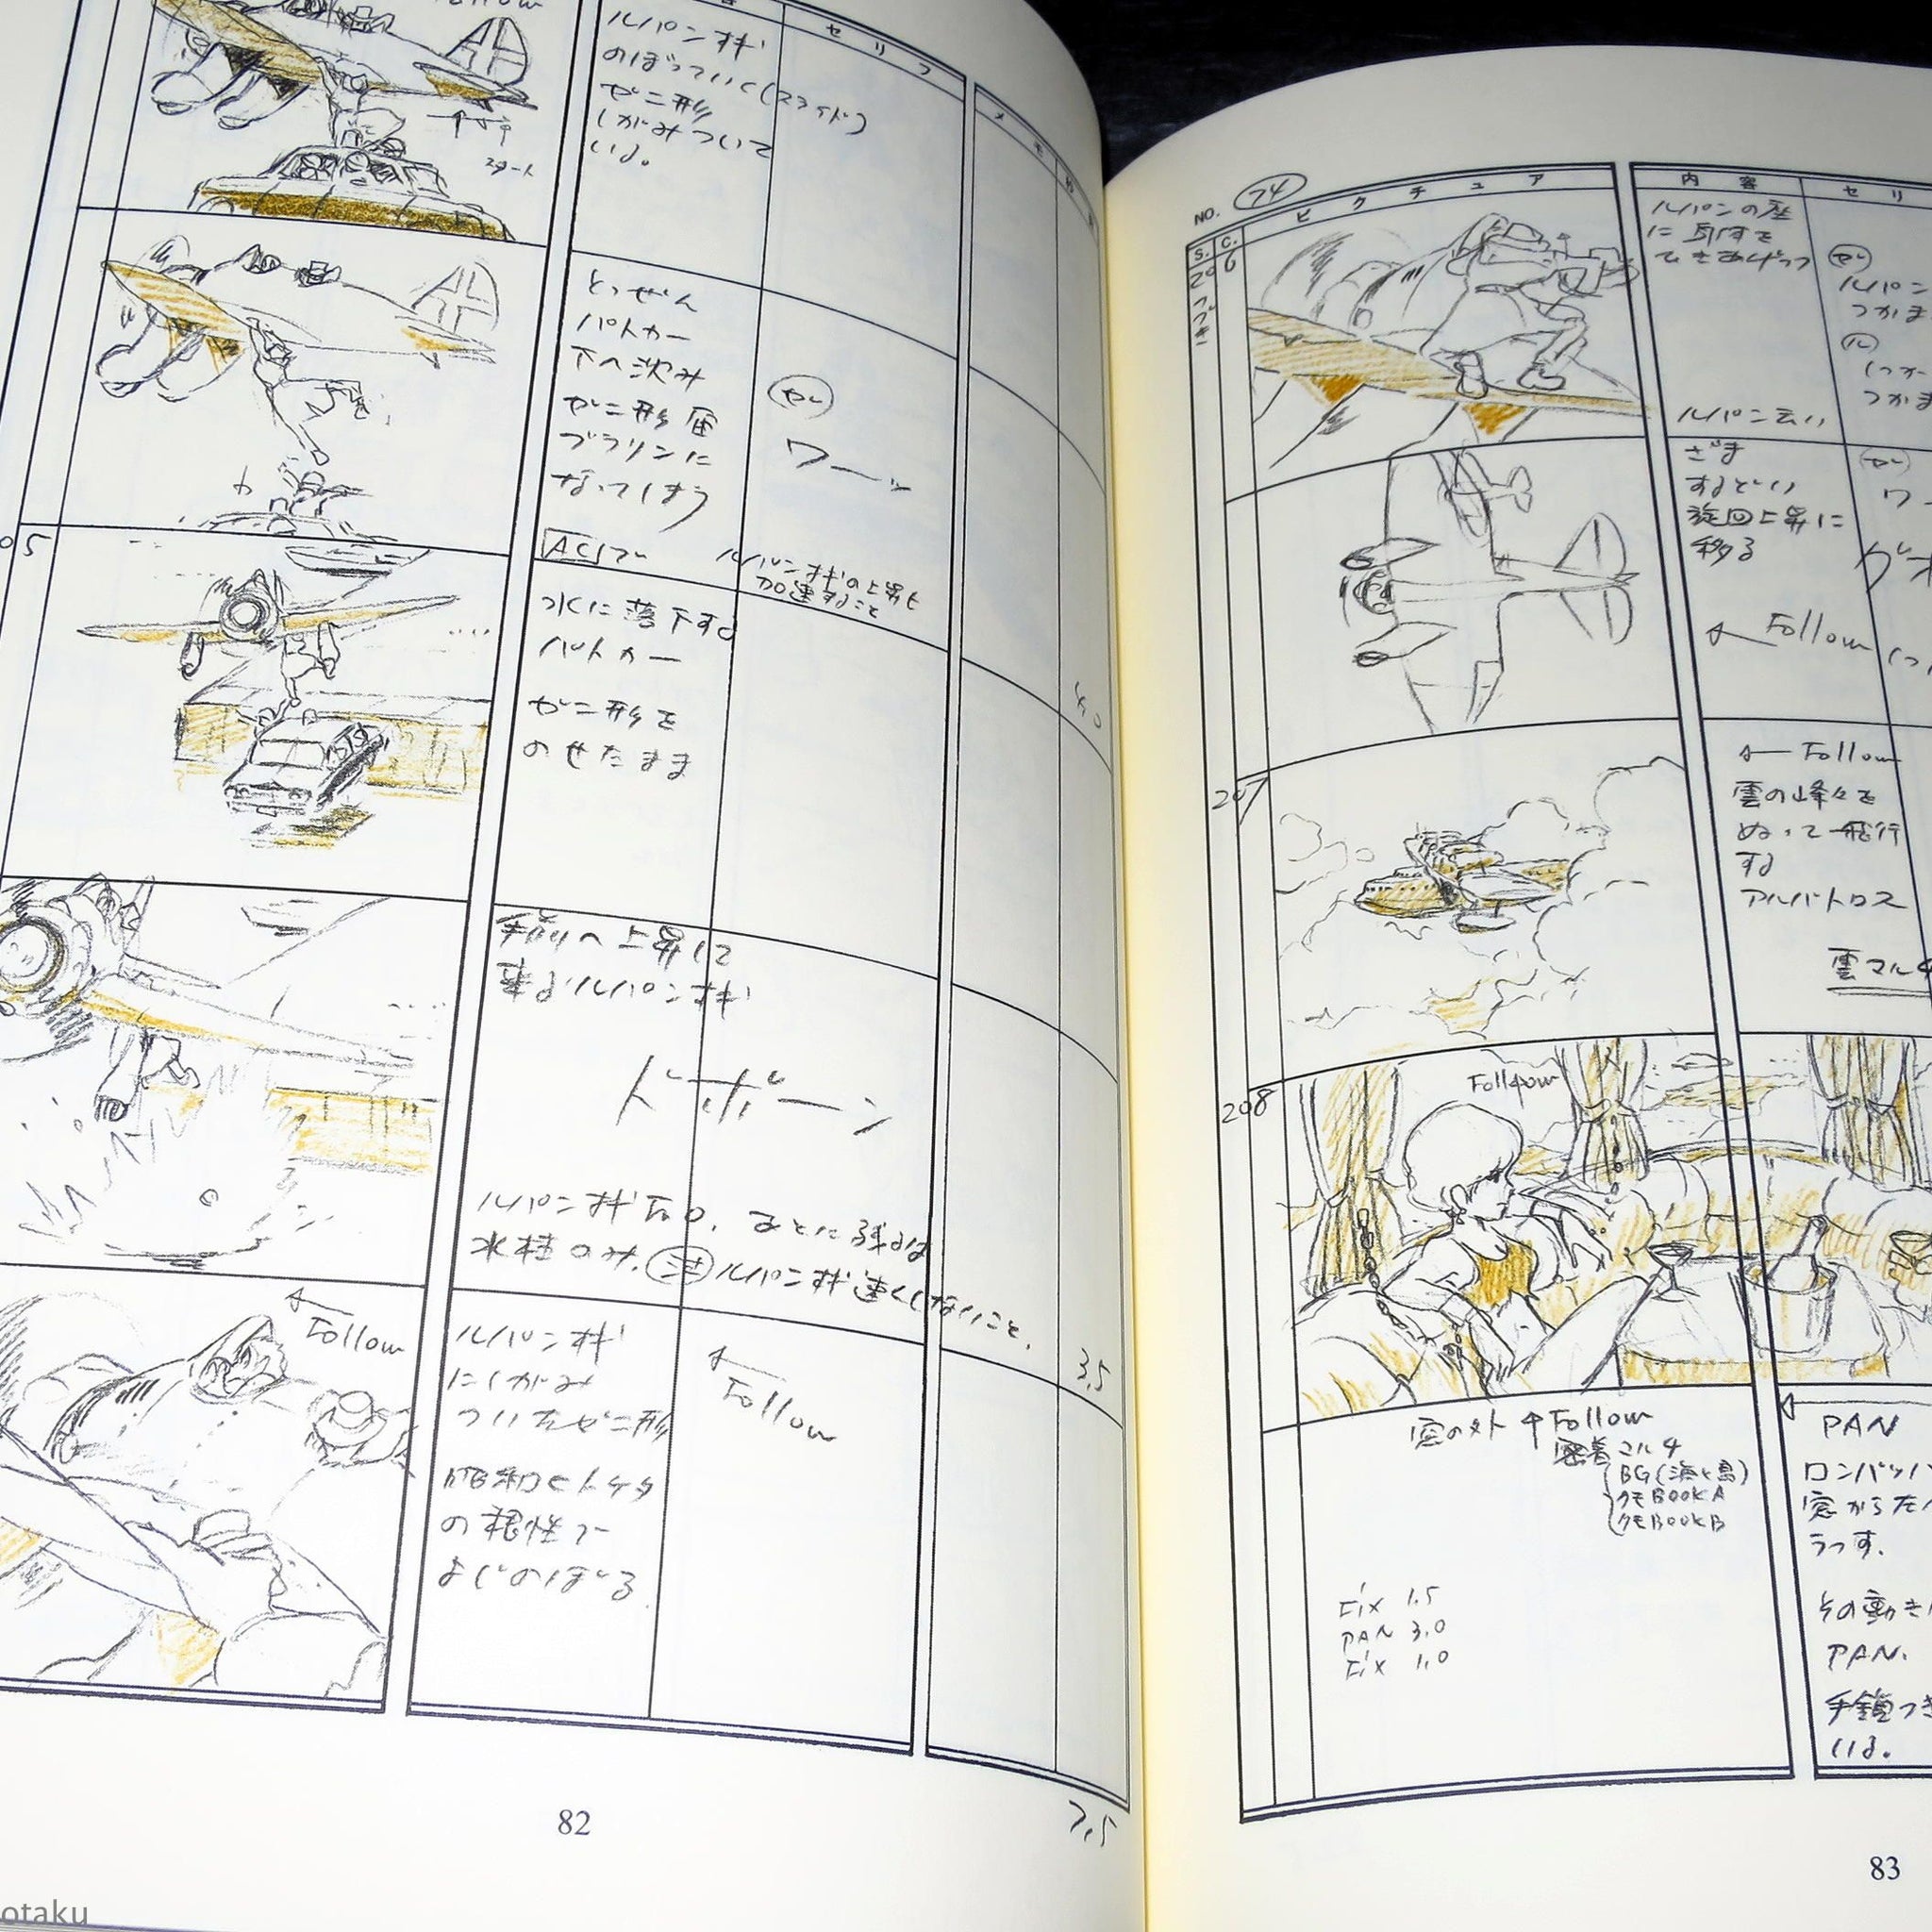 Follow
容
セリフ
メモ
ルパン機
のぼっていく(スライド)
ゼニ形
しがみついて
いる。
スタート
とつぜん
パトカー
下へ沈み
ゼニ形宙
ブラリンに
なってしまう
ゼ
ワーッ
05
ACして
ルパン機の上昇も
加速すること
水に落下する
パトカー
ゼニ形を
のせたまま
4.0
手前へ上昇して
来るルパン機
ドボーン
ルパン機
あとに残るは
水柱のみ.
注 ルパン機速くしないこと.
3.5
Follow
ルパン機
にしがみ
ついたゼニ形
Follow
昭和ヒトケタ
の根性で
よじのぼる
7.5
82
otaku
NO. 74
ピクチュア
内容
セリ
S. C.
206
つづき
ルパンの座
に身体を
ひきあげつつ
ゼ
ルパン
つかま
ル
しっかー
つかま
ルパン云い
ざま
するどい
旋回上昇に
移る
ゼ
ワー
Follow
207
Follow
雲の峰々を
ぬって飛行
する
アルバトロス
雲マルチ
208
Follow
窓の外 Follow
密着マルチ
BG(海と島)
クモBOOK A
クモBOOK B
PAN
窓から左へ
うつす.
Fix 1.5
PAN 3.0
Fix 1.0
その動き
PAN.
手鎖つき
いる。
83